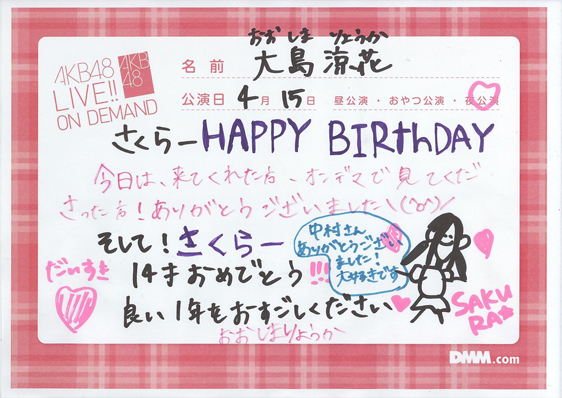 おおしま りょうか
AKB48
LIVE!!
ON DEMAND
AKB
48
名前 大島 涼花
公演日 4月 15日 昼公演・おやつ公演・夜公演
さくらー HAPPY BIRthDAY
今日は、来てくれた方、オンデマで見てくだ
さった方!ありがとうございました\(^o^)/
そして!さくらー
中村さん
ありがとうござい
ました!
大好きです
だいすき
14才おめでとう!!!
良い1年をおすごしください
SAKU
RA
おおしまりょうか
DMM.com